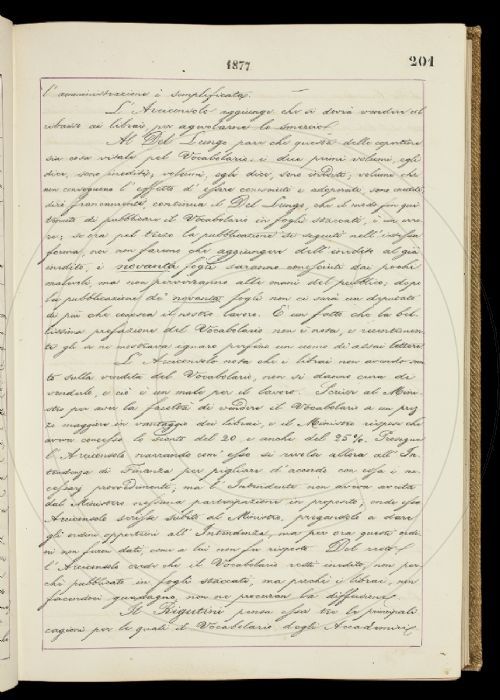 1877
201
l'amministrazione è semplificata.
L'Arciconsolo aggiunge che si dovrà vendere il
ribasso ai librai, per agevolarne lo smercio.
Al Del Lungo pare che questa delle copertine
sia cosa vitale pel Vocabolario. i due primi volumi, egli
dice, sono inediti, volumi, egli dice, sono inediti, volumi che
non conseguono l'effetto di essere conosciuti e adoperati, sono inediti.
dirò francamente, continua il Del Lungo, che il modo fin qui
tenuto di pubblicare il Vocabolario in fogli staccati, è un erro
re; se ora pel terzo la pubblicazione si seguiti nell'istessa
forma, noi non faremo che aggiungere dell'inedito al già
inedito, i novanta fogli saranno conosciuti dai pochi
malevoli, ma non perverranno alle mani del pubblico; dopo
la pubblicazione de' novanta fogli non ci sarà un deputato
di più che conosca il nostro lavoro. È un fatto che la bel
lissima prefazione del Vocabolario non è nota, e recentemen
te gli si è mostrava ignaro perfino un uomo di assai lettere.
L'Arciconsolo nota che i librai non avendo scon
to sulla vendita del Vocabolario, non si danno cura di
venderlo, e ciò è un male per il lavoro. Scrisse al Mini
stro per aver la facoltà di vendere il Vocabolario a un prez
zo maggiore in vantaggio dei librai, e il Ministro rispose che
aveva concesso lo sconto del 20 e anche del 25%. Prosegue
l'Arciconsolo narrando com'esso si rivolse allora all'In
tendenza di Finanza per pigliare d'accordo con essa i ne
cessarj provvedimenti, ma l'Intendente non aveva avuta
dal Ministero nessuna partecipazione in proposito; onde esso
Arciconsolo scrisse subito al Ministro, pregandolo a dare
gli ordini opportuni all'Intendenza, ma per ora questi ordi
ni non furon dati, come a lui non fu risposto. Del resto
l'Arciconsolo crede che il Vocabolario resti inedito, non per
chè pubblicato in fogli staccati, ma perchè i librai, non
facendoci guadagno, non ne procuran la diffusione.
Il Rigutini pensa esser tre le principali
cagioni per le quali il Vocabolario degli Accademici